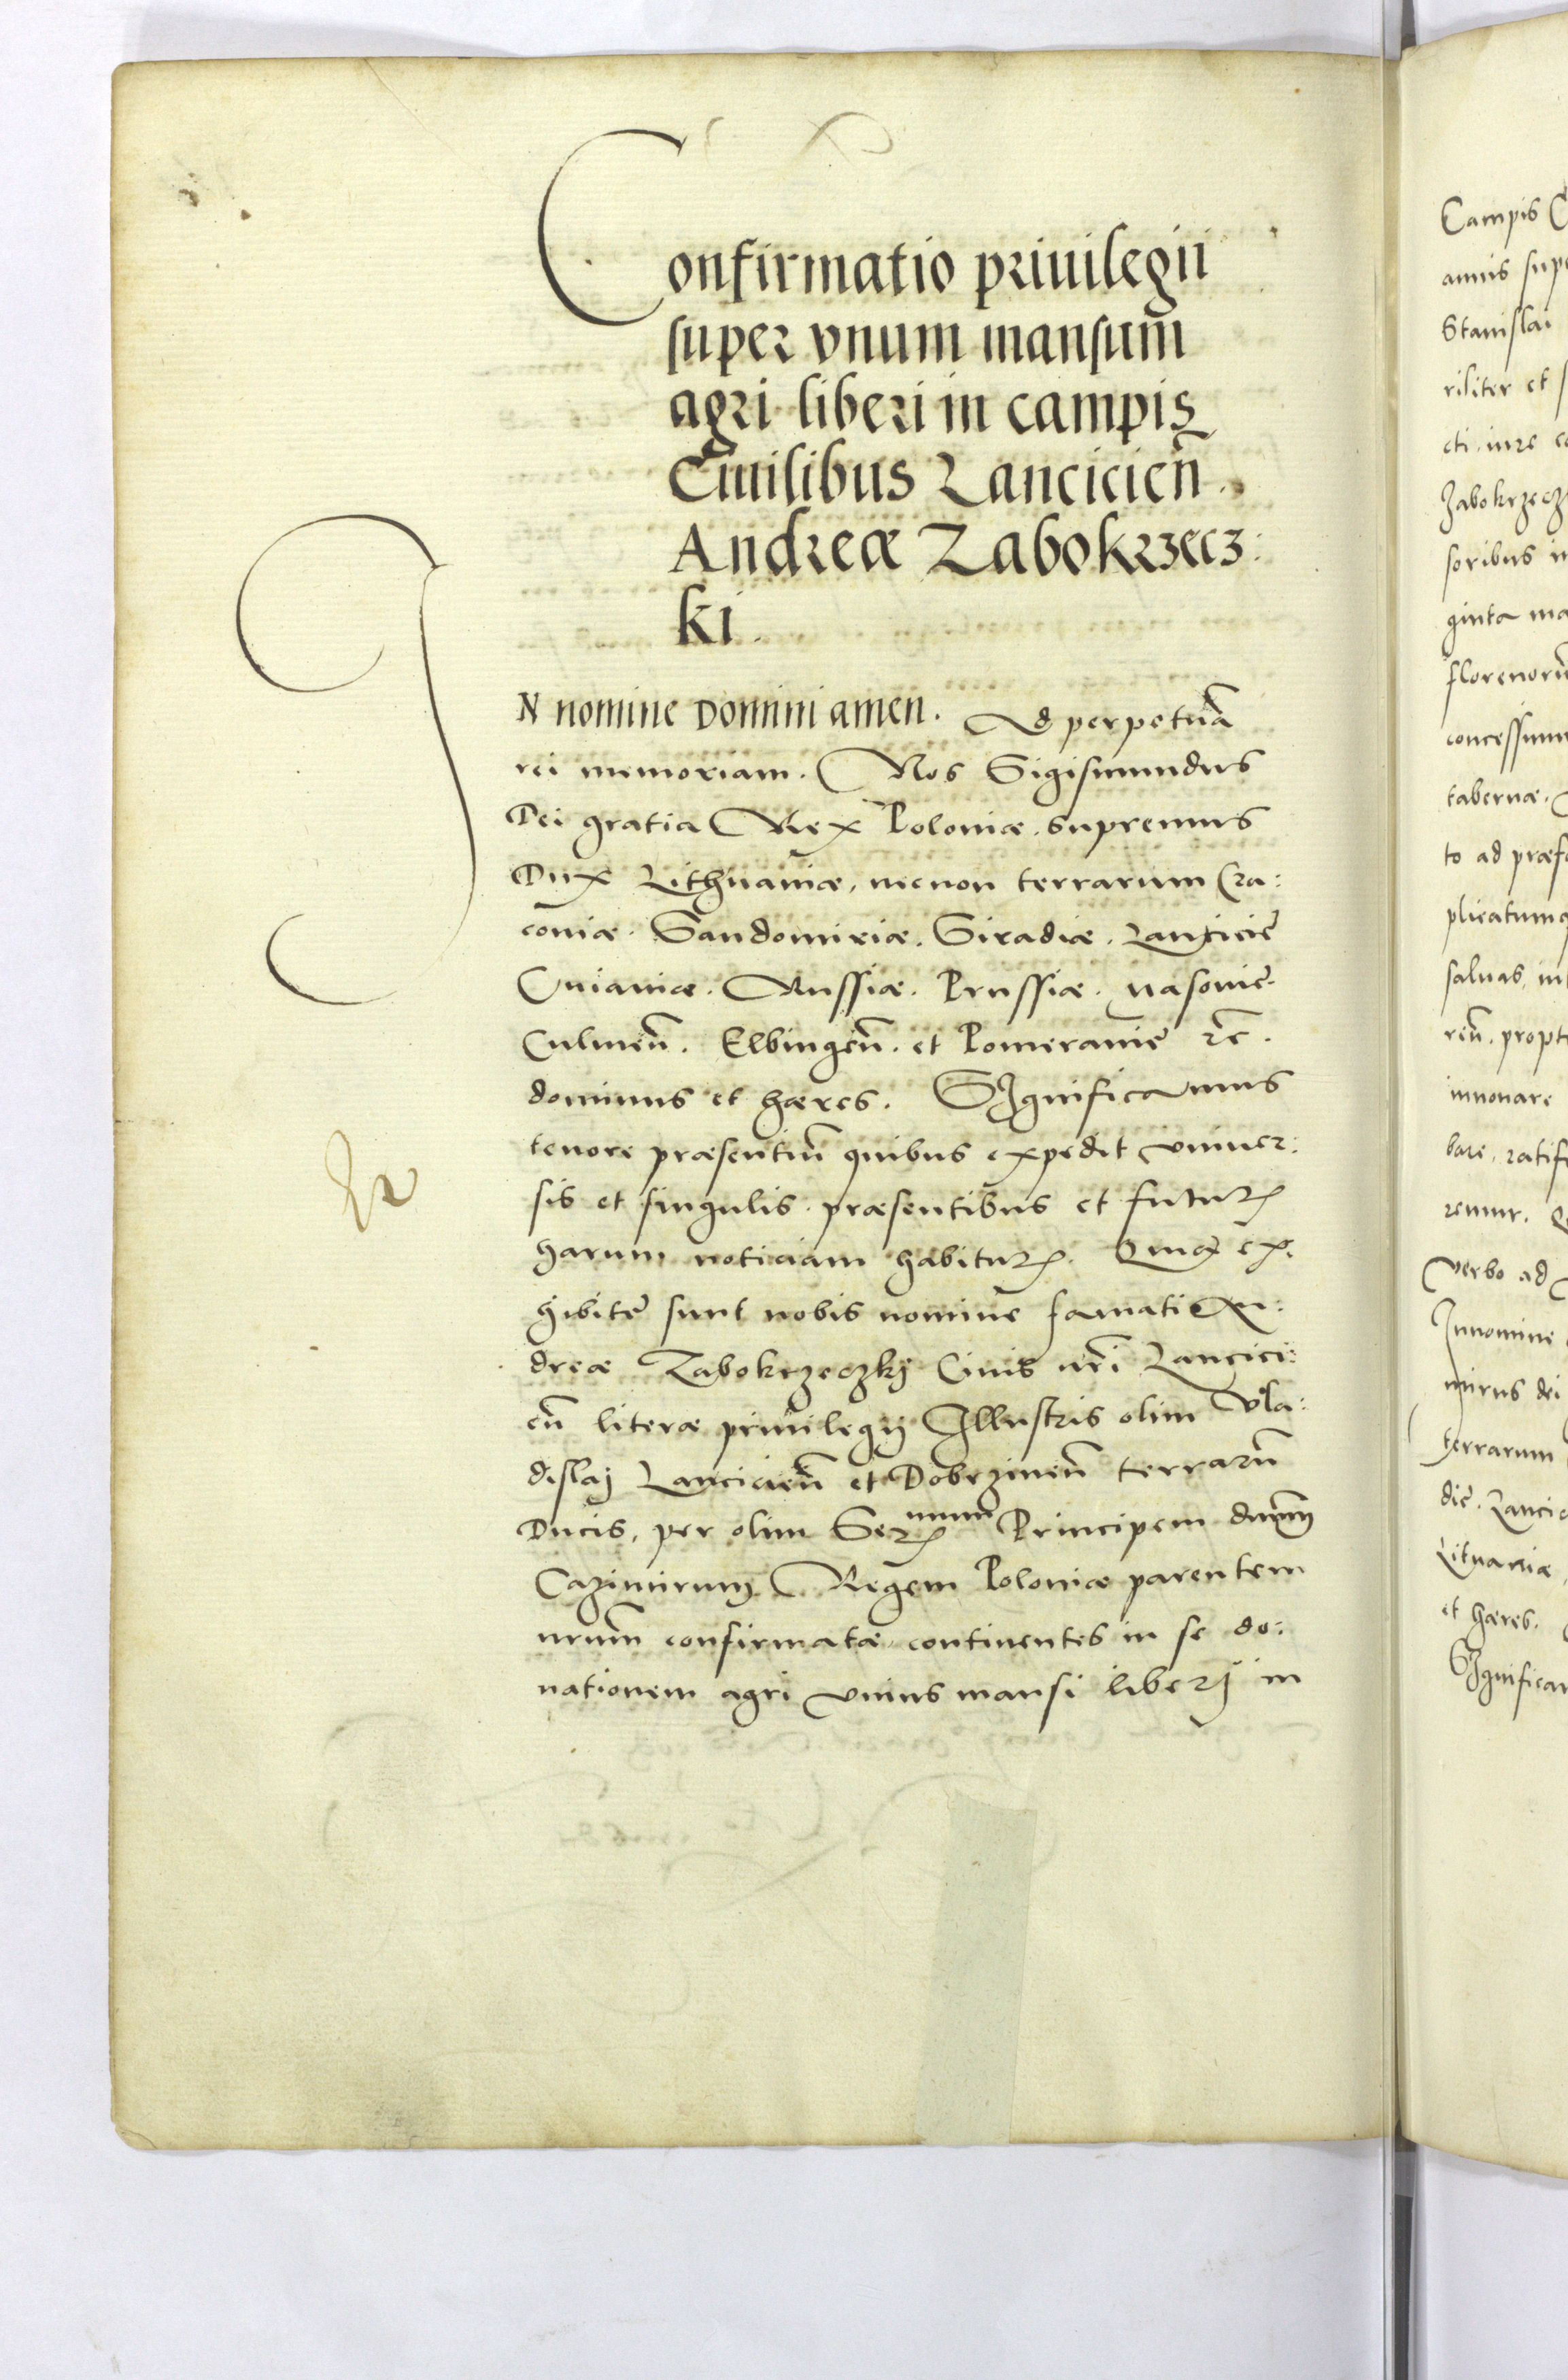 Confirmatio priuilegii
super vnum mansum
agri liberi in campis
Ciuilibus Lancicien̄.
Andreæ Zabokrzecz:
ki.
IN nomine Domini amen. Ad perpetuā
rei memoriam. Nos Sigismundus
Dei gratia Rex Poloniæ. supremus
Dux Lithuaniæ, necnon terrarum Cra:
couiæ. Sandomiriæ. Siradiæ. Lancicię
Cuiauiæ. Russiæ. Prussiæ. Masouię.
Culmen̄. Elbingen̄. et Pomeranię ꝛc̄.
dominus et hæres. SIgnificamus
tenore præsentiū quibus expedit vniuer:
sis et singulis præsentibus et futurꝭ
harum noticiam habiturꝭ. Quia ex:
hibitę sunt nobis nomine famati An:
dreæ Zabokrzeczkÿ Ciuis nr̄i Lancici:
en̄ literæ priuilegij Illustris olim Vla:
dislaj Lancicien̄ et Dobrzinen̄ terrarū
Ducis, per olim Serꝭmum Principem dn̄um
Cazimirum Regem Poloniæ parentem
nr̄um confirmatæ continentes in se do:
nationem agri vnius mansi liberj in
Campis
annis
Stanislai
riliter et
cti iure
Zabokrzecz
soribus
ginta
florenorū
concessim
tabernæ.
to ad præf
plicatum
saluas in
ren̄. propt
innouare
bare. ratif
remur.
Verbo ad
Innomine
mirus dei
terrarum
dię. Lancic
Lituaniæ
et hæres.
SIgnifica